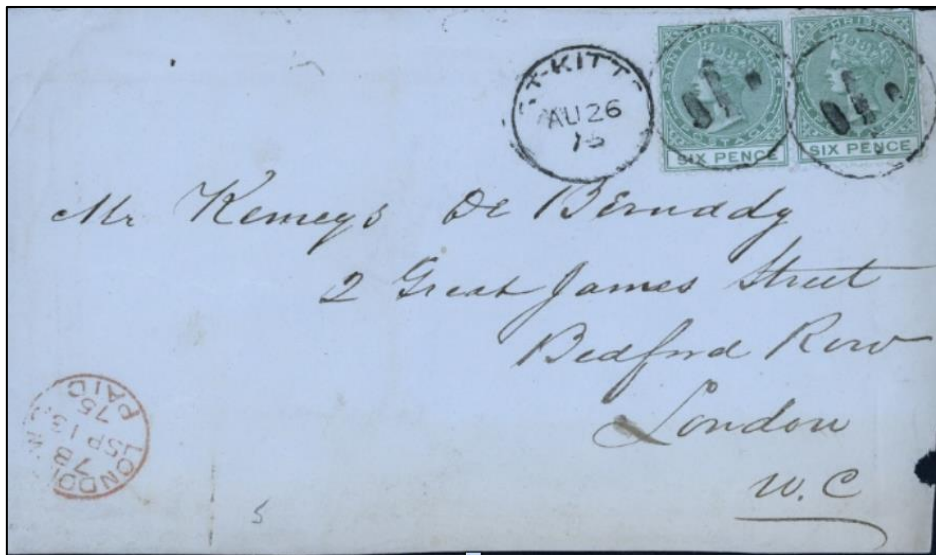 ST-KITTS
AU 26
75
SAINT CHRISTOPHER
POSTAGE
SIX PENCE
SAINT CHRISTOPHER
POSTAGE
SIX PENCE
Mr Kemeys De Bernady
2 Great James Street
Bedford Row
London
W.C
LONDON
7 B
SP 13
75
PAID
5